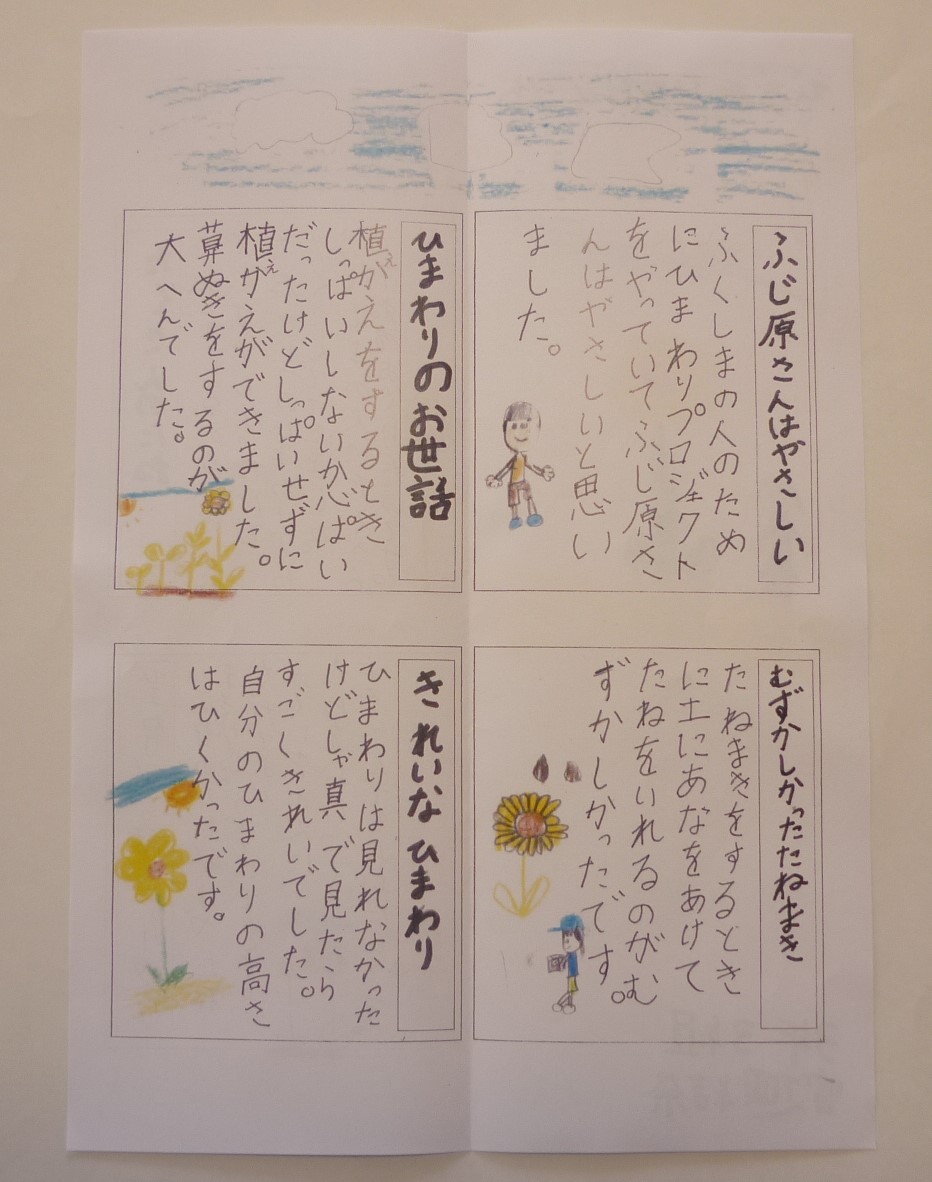 ふじ原さんはやさしい
ふくしまの人のため
にひまわりプロジェクト
をやっていてふじ原さ
んはやさしいと思い
ました。
ひまわりのお世話
植がえをするとき
え
しっぱいしないか心ぱい
だったけどしっぱいせずに
植がえができました。
え
草ぬきをするのが
大へんでした。
むずかしかったたねまき
たねまきをするとき
に土にあなをあけて
たねをいれるのがむ
ずかしかったです。
きれいなひまわり
ひまわりは見れなかった
けどしゃ真で見たら
すごくきれいでした。
自分のひまわりの高さ
はひくかったです。